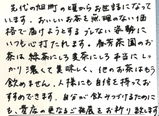 先代の旭町の頃からお世話になって
います。おいしいお茶を無理のない価
格で届けようとするブレない姿勢に
いつも心打たれます。寿芳茶園のお
茶は緑茶にしろ麦茶にしろ本当にしっ
かり濃くて美味しく、他のお茶はもう
飲めません。人様にも自信を持ってお
すすめできます。自分が飲みつづけるためにも、
貴店の更なるご発展とお祈り致します